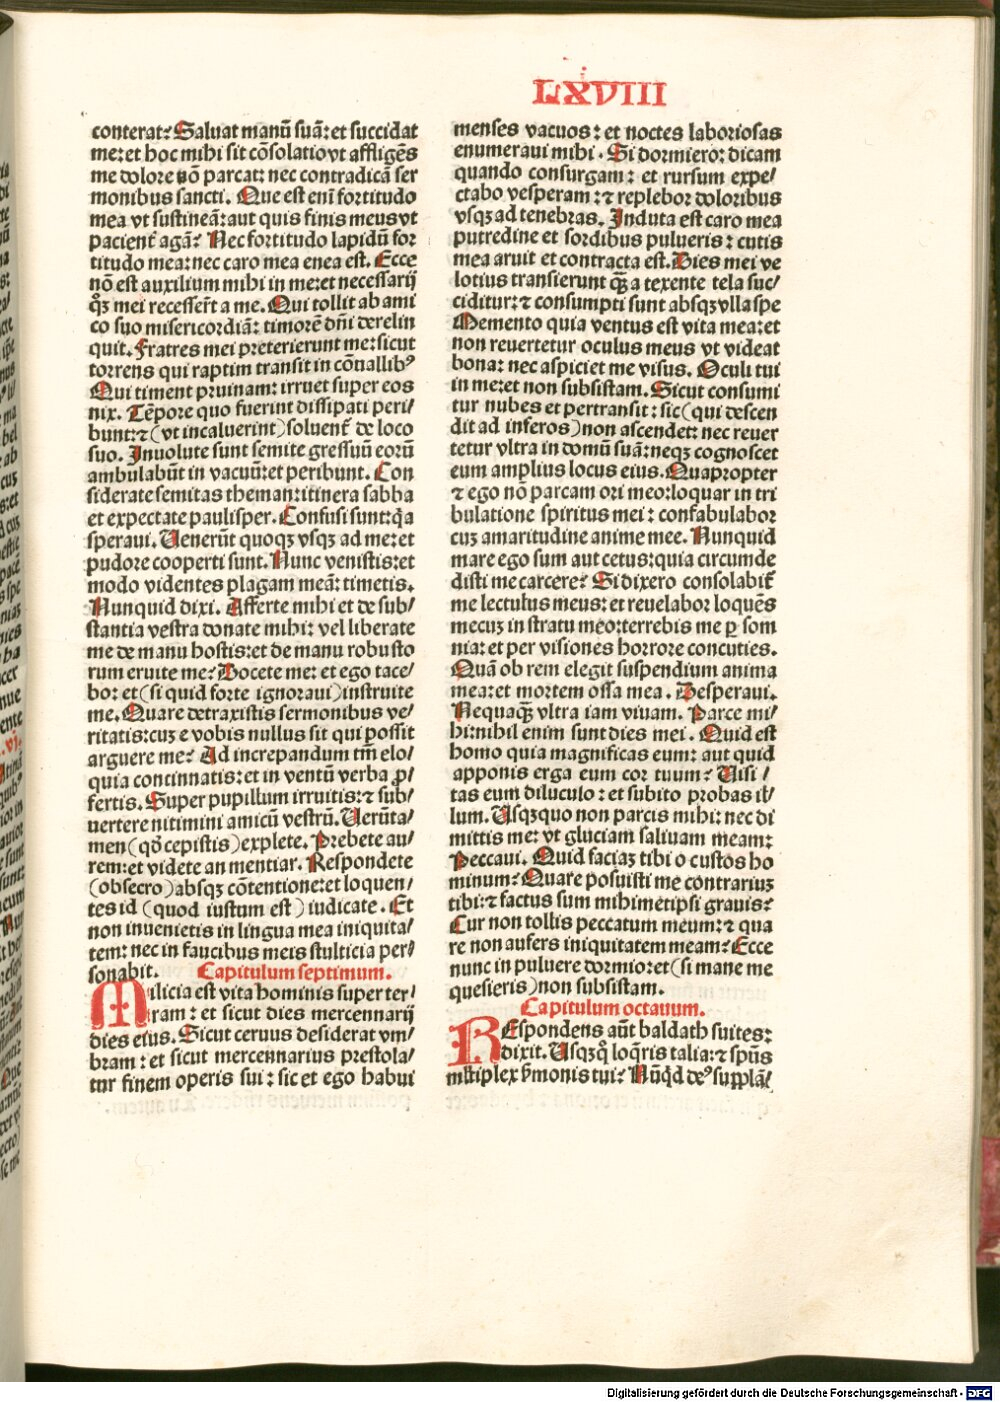 LXVIII
conterat? Saluat manū suā: et succidat
me: et hoc mihi sit cōsolatio vt affligēs
me dolore nō parcat: nec contradicā ser
monibus sancti. Que est eni fortitudo
mea vt sustineā: aut quis finis meus vt
pacient̄ agā? Nec fortitudo lapidū for
titudo mea: nec caro mea enea est. Ecce
nō est auxilium mihi in me: et necessarij
qꝫ mei recesser̄t a me. Qui tollit ab ami
co suo misericordiā: timorē dn̄i derelin
quit. Fratres mei preterierunt me: sicut
torrens qui raptim transit in cōuallibꝰ
Qui timent pruinam: irruet super eos
nix. Tēpore quo fuerint dissipati peri/
bunt: ⁊ (vt incaluerint) soluent̄ de loco
suo. Inuolute sunt semite gressuū eorū
ambulabūt in vacuū: et peribunt. Con
siderate semitas theman: itinera sabba
et expectate paulisper. Confusi sunt: q̇a
speraui. Uenerūt quoqꝫ vsqꝫ ad me: et
pudore cooperti sunt. Nunc venistis: et
modo videntes plagam meā: timetis.
Nunquid dixi. Afferte mihi et de sub/
stantia vestra donate mihi: vel liberate
me de manu hostis: et de manu robusto
rum eruite me? Docete me: et ego tace/
bo: et (si quid forte ignoraui) instruite
me. Quare detraxistis sermonibus ve/
ritatis: cuꝫ e vobis nullus sit qui possit
arguere me? Ad increpandum tm̄ elo/
quia concinnatis: et in ventū verba ꝓ/
fertis. Super pupillum irruitis: ⁊ sub/
uertere nitimini amicū vestrū. Uerūta/
men (qō cepistis) explete. Prebete au/
rem: et videte an mentiar. Respondete
(obsecro) absqꝫ cōtentione: et loquen/
tes id (quod iustum est) iudicate. Et
non inuenietis in lingua mea iniquita/
tem: nec in faucibus meis stulticia per/
sonabit. Capitulum septimum.
Milicia est vita hominis super ter/
ram: et sicut dies mercennarij
dies eius. Sicut ceruus desiderat vm/
bram: et sicut mercennarius prestola/
tur finem operis sui: sic et ego habui
menses vacuos: et noctes laboriosas
enumeraui mihi. Si dormiero: dicam
quando consurgam: et rursum expe/
ctabo vesperam: ⁊ replebor doloribus
vsqꝫ ad tenebras. Induta est caro mea
putredine et sordibus pulueris: cutis
mea aruit et contracta est. Dies mei ve
lotius transierunt qꝫ̄ a texente tela suc/
ciditur: ⁊ consumpti sunt absqꝫ vlla spe
Memento quia ventus est vita mea: et
non reuertetur oculus meus vt videat
bona: nec aspiciet me visus. Oculi tui
in me: et non subsistam. Sicut consumi
tur nubes et pertransit: sic (qui descen
dit ad inferos) non ascendet: nec reuer
tetur vltra in domū suā: neqꝫ cognoscet
eum amplius locus eius. Quapropter
⁊ ego nō parcam ori meo: loquar in tri
bulatione spiritus mei: confabulabor
cuꝫ amaritudine anime mee. Nunquid
mare ego sum aut cetus: quia circumde
disti me carcere? Si dixero consolabit̄
me lectulus meus: et reuelabor loquēs
mecuꝫ in stratu meo: terrebis me ꝑ som
nia: et per visiones horrore concuties.
Quā ob rem elegit suspendium anima
mea: et mortem ossa mea. Desperaui.
Nequaqꝫ̄ vltra iam viuam. Parce mi/
hi: nihil enim sunt dies mei. Quid est
homo quia magnificas eum: aut quid
apponis erga eum cor tuum? Uisi/
tas eum diluculo: et subito probas il/
lum. Usqꝫquo non parcis mihi: nec di
mittis me: vt gluciam saliuam meam:
Peccaui. Quid faciaꝫ tibi o custos ho
minum? Quare posuisti me contrariuꝫ
tibi: ⁊ factus sum mihimetipsi grauis?
Cur non tollis peccatum meum: ⁊ qua
re non aufers iniquitatem meam? Ecce
nunc in puluere dormio: et (si mane me
quesieris) non subsistam.
Capitulum octauum.
REspondens aūt baldath suites:
dixit. Usqꝫq̊ loq̄ris talia: ⁊ spūs
mltiplex ẜmonis tui? Nūqd deꝰ supplā/